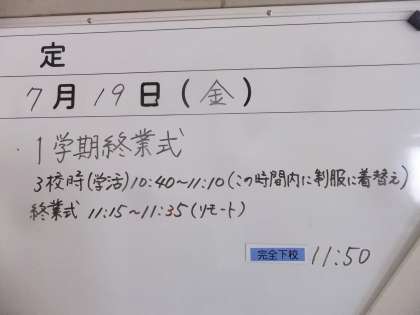 定
7月19日(金)
1学期終業式
3校時(学活)10:40〜11:10(この時間内に制服に着替え)
終業式 11:15〜11:35(リモート)
完全下校 11:50